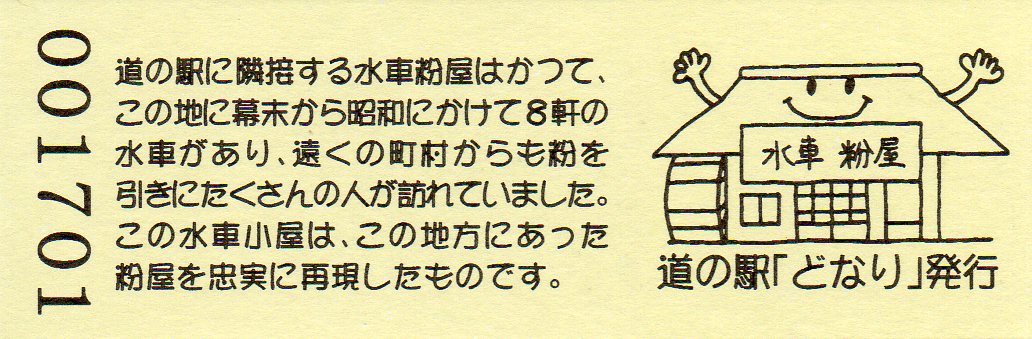 001701
道の駅に隣接する水車粉屋はかつて、
この地に幕末から昭和にかけて8軒の
水車があり、遠くの町村からも粉を
引きにたくさんの人が訪れていました。
この水車小屋は、この地方にあった
粉屋を忠実に再現したものです。
水車 粉屋
道の駅「どなり」発行